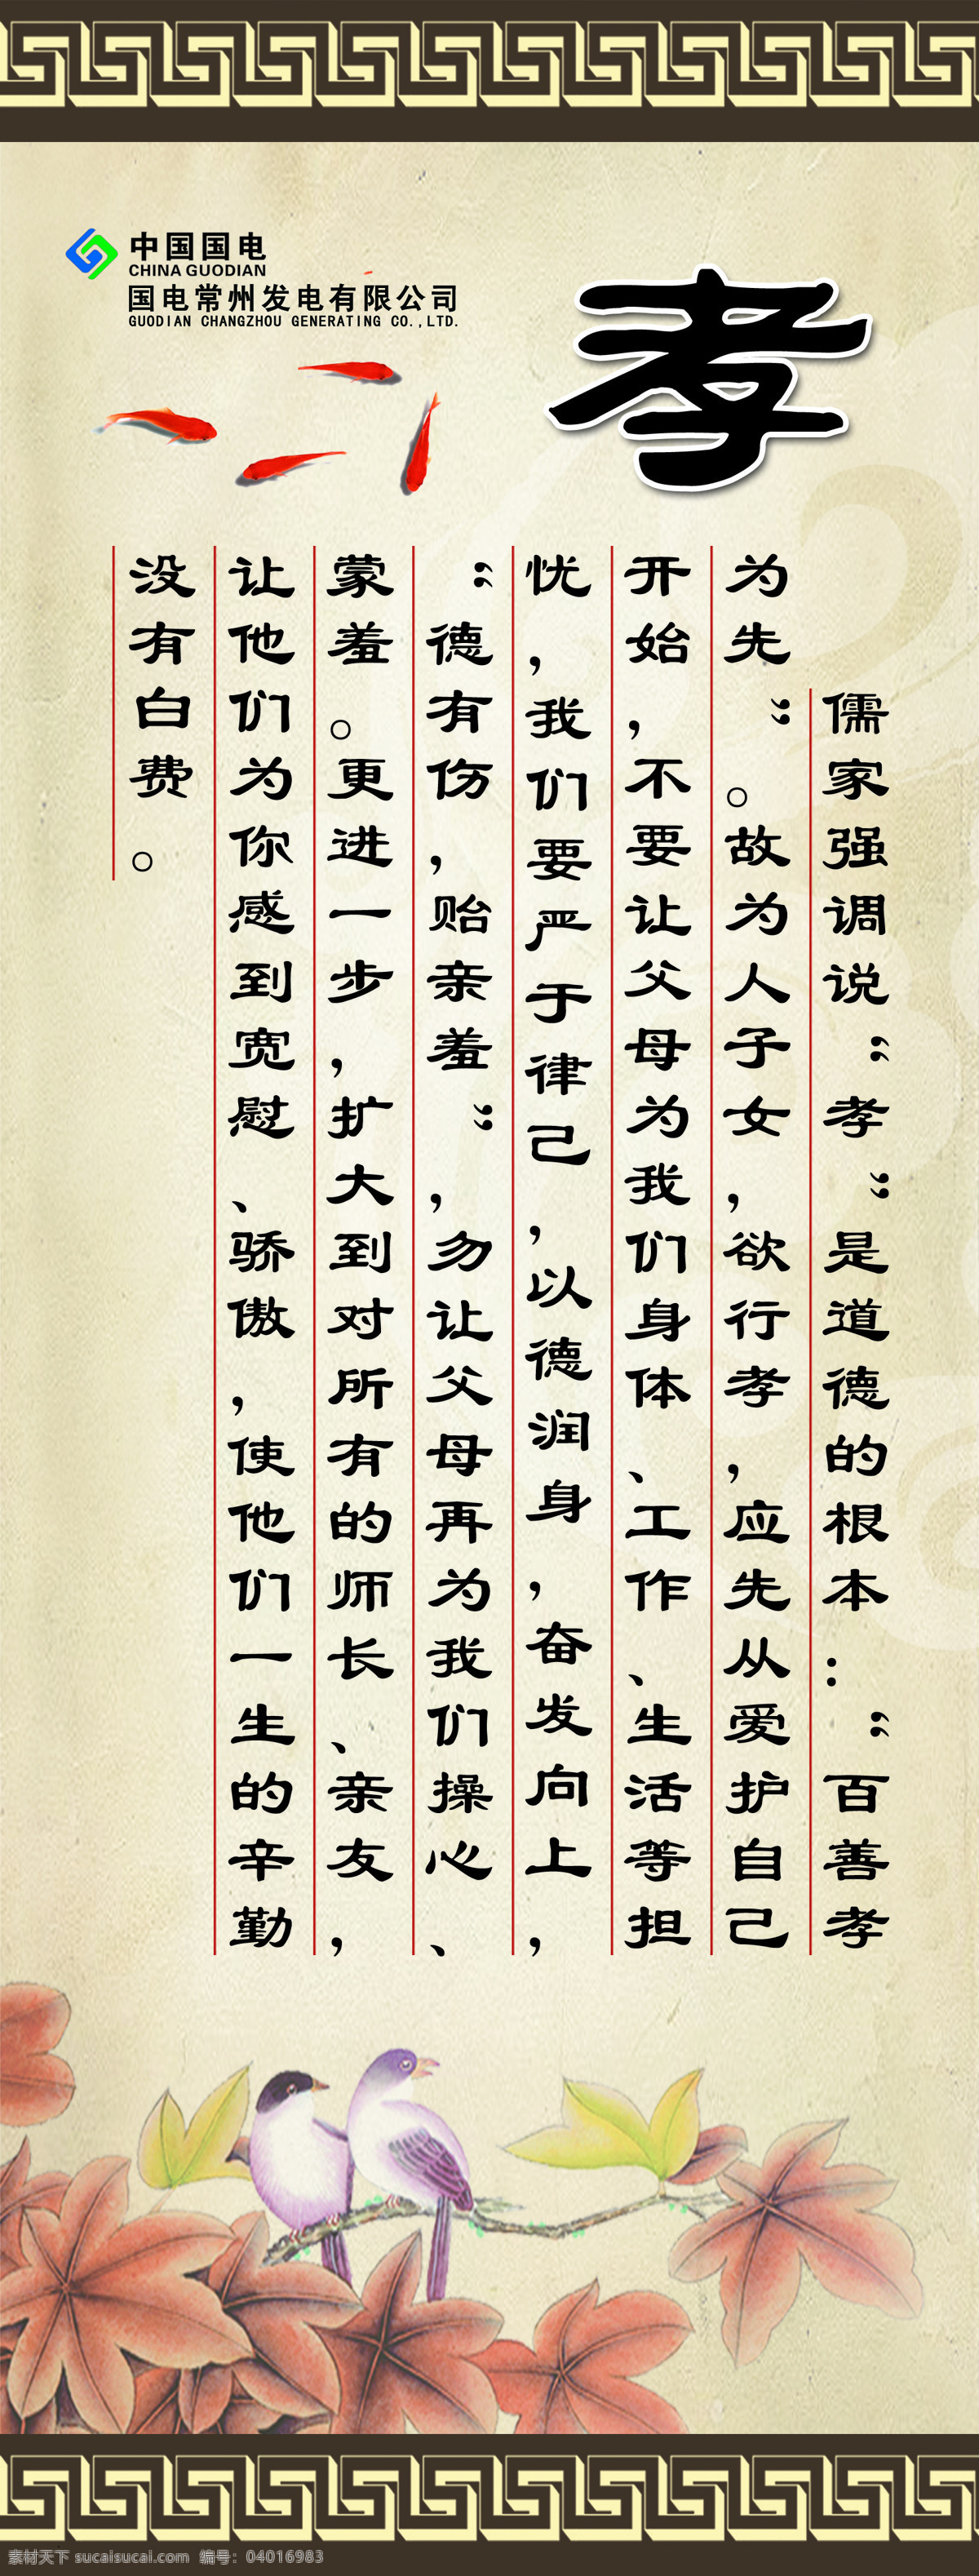 中国国电
CHINA GUODIAN
国电常州发电有限公司
GUODIAN CHANGZHOU GENERATING CO.,LTD.
孝
儒家强调说“孝”是道德的根本：“百善孝
为先”。故为人子女，欲行孝，应先从爱护自己
开始，不要让父母为我们身体、工作、生活等担
忧，我们要严于律己，以德润身，奋发向上，
“德有伤，贻亲羞”，勿让父母再为我们操心、
蒙羞。更进一步，扩大到对所有的师长、亲友，
让他们为你感到宽慰、骄傲，使他们一生的辛勤
没有白费。
素材天下 sucaisucai.com 编号：04016983